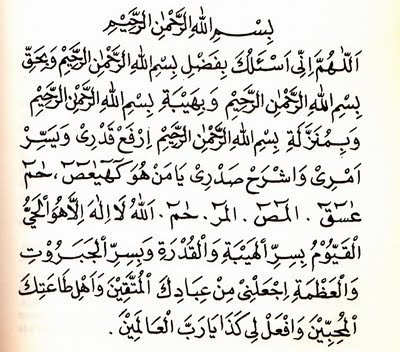 بِسْمِ اللهِ الرَّحْمٰنِ الرَّحِيْمِ
اَللّٰهُمَّ اِنِّى اَسْئَلُكَ بِفَضْلِ بِسْمِ اللهِ الرَّحْمٰنِ الرَّحِيْمِ وَبِحَقِّ
بِسْمِ اللهِ الرَّحْمٰنِ الرَّحِيْمِ وَبِهَيْبَةِ بِسْمِ اللهِ الرَّحْمٰنِ الرَّحِيْمِ
وَبِمَنْزِلَةِ بِسْمِ اللهِ الرَّحْمٰنِ الرَّحِيْمِ اِرْفَعْ قَدْرِىْ وَيَسِّرْ
اَمْرِىْ وَاشْرَحْ صَدْرِىْ يَا مَنْ هُوَ كٓهٰيٰعٓصٓ، حٰمٓ
عٓسٓقٓ ٠ الٓمٓصٓ ٠ الٓمٓرٰ ٠ حٰمٓ ٠ اَللهُ لَا اِلٰهَ اِلَّا هُوَ الْحَيُّ
الْقَيُّوْمُ بِسِرِّ الْهَيْبَةِ وَالْقُدْرَةِ وَبِسِرِّ الْجَبَرُوْتِ
وَالْعَظَمَةِ اِجْعَلْنِىْ مِنْ عِبَادِكَ الْمُتَّقِيْنَ وَاَهْلِ طَاعَتِكَ
الْمُحِبِّيْنَ وَافْعَلْ لِى كَذَا يَارَبَّ الْعَالَمِيْنَ ٠